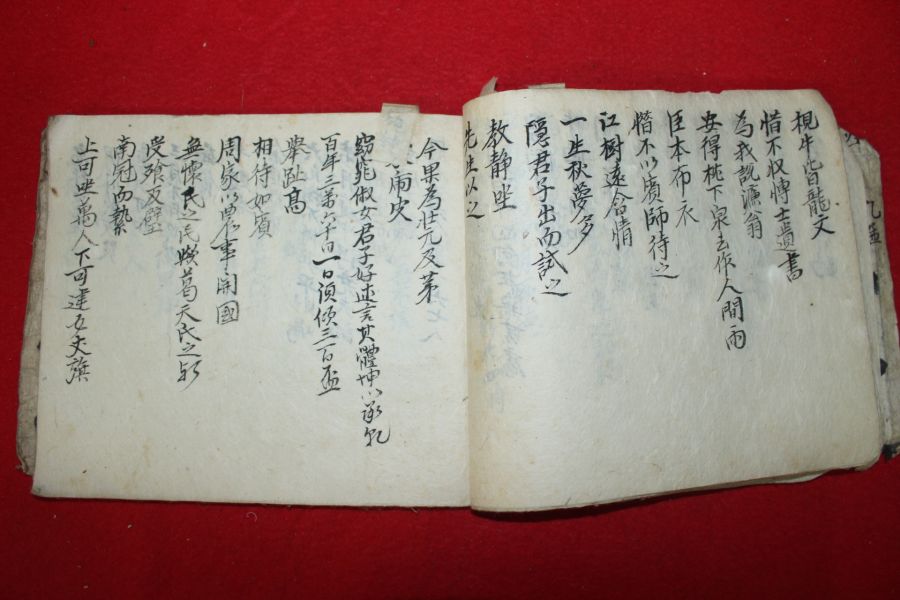 視牛皆龍文
惜不収博士遺書
為我說濂翁
安得桃下泉去作人間雨
臣本布衣
惜不以賓師待之
江樹遠含情
一生秋夢多
隱君子出而試之
教静坐
先生以之
今果為壮元及第
窈窕俶女君子好逑言其體坤以承乹
百年三萬六千日一日須傾三百盃
舉趾高
相待如賓
周家以農事開國
無懷民之民歟葛天氏之
南冠而縶
上可坐萬人下可建五丈旗